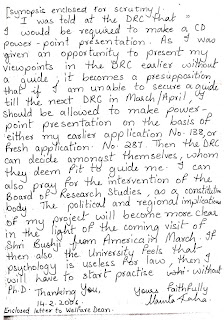 [synopsis enclosed for scrutiny]
"I was told at the DRC that
I would be required to make a CD
power-point presentation. As I was
given an opportunity to present my
viewpoints in the BRC earlier without
a guide; it becomes a presupposition
that if I am unable to secure a guide
till the next DRC in March/April, I
should be allowed to make power-
point presentation on the basis of
either my earlier application No. 138, or
Fresh application No. 287. Then the DRC
can decide amongst themselves, whom
they deem fit to guide me. I can
also pray for the intervention of the
Board of Research Studies, as a constitution
body. The political and regional implications
of my project will become more clear
in the light of the coming visit of
Shri Bushji from America in March. If
then also the University feels that
psychology is useless for laws, then I
will have to start practise without
Ph.D. Thanking You, Yours faithfully
14.2.2006.
Enclosed letter to Welfare Dean.